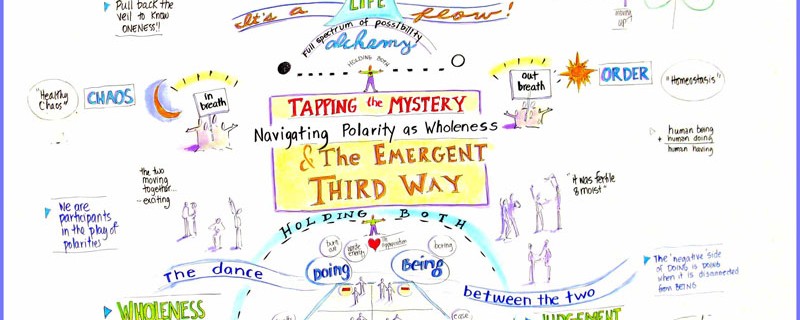 Pull back the
veil to know
ONENESS!!
It's a
LIFE
flow!
Full spectrum of possibility
alchemy
HOLDING BOTH
"Healthy
Chaos"
CHAOS
in
breath
out
breath
ORDER
"Homeostasis"
TAPPING the MYSTERY
Navigating Polarity as Wholeness
& The EMERGENT
THIRD WAY
human being
+ human doing
human having
the two
moving
together...
exciting
"it was fertile
& moist"
We are
participants
in the play of
polarities
HOLDING BOTH
burn
out
boring
Doing
Being
The dance
between the two
The 'negative' side
of DOING is DOING
when it is disconnected
from BEING
WHOLENESS
JUDGEMENT